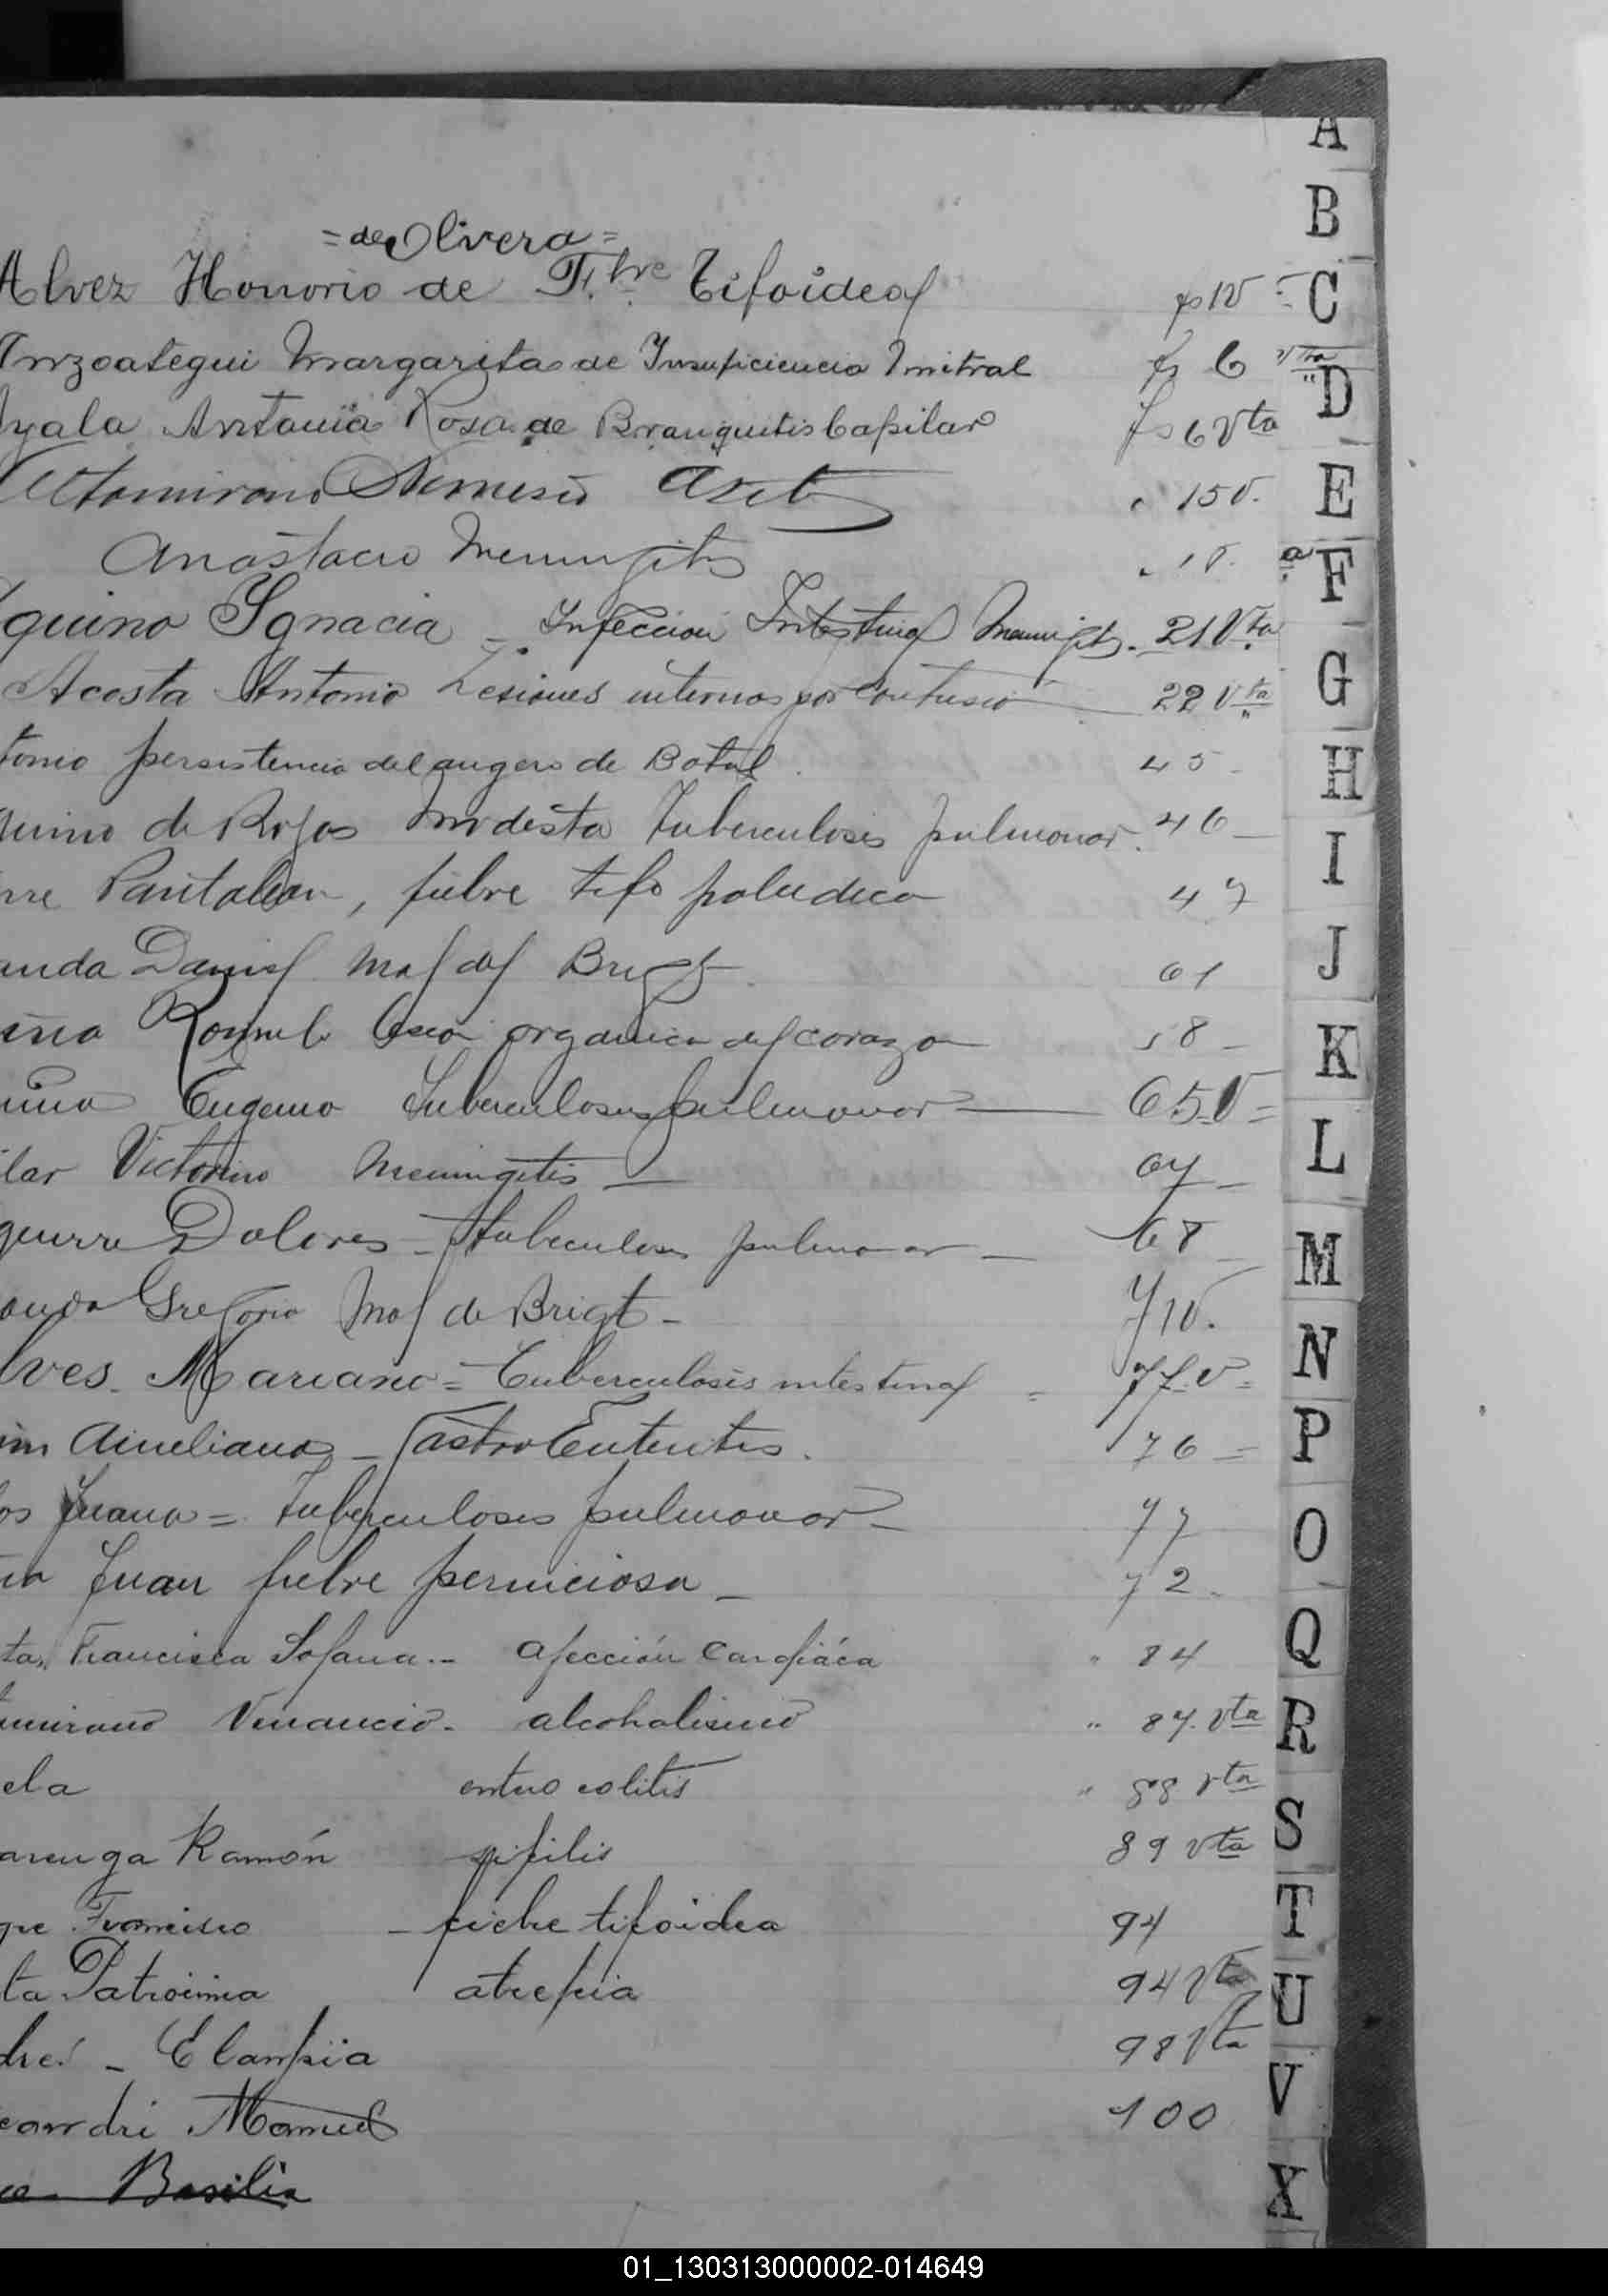 = de Olivera =
Alvez Honorio de F.bre Tifoidea fs 1V =
Anzoategui Margarita de Insuficiencia mitral fs 6 vta
Ayala Antonia Rosa de Bronquitis Capilar fs 6 Vta
Altamirano Nemesio 15 V.
Anastacio Meningitis
quino Ignacia - Infeccion Intestinal Meningitis. 21 Vta
Acosta Antonio Lesiones internas por contusion 22 Vta
tonio persistencia del augero de Botal 45 -
quino de Rojas Modesta Tuberculosis pulmonar. 46 -
rre Pantaleon, fiebre tifo paludica 47
anda Daniel Mal del Brigt 61
Romulo lesion organica del corazon 58 -
Eugenio Tuberculosis pulmonar 65 V =
ilar Victorino Meningitis - 67 -
guirre Dolores - tuberculosis pulmonar - 68
anda Gregorio Mal de Brigt - 71 V.
lves. Mariano = Tuberculosis intestinal =
Aureliano - Gastro Enteritis. 76 =
os Juana = Tuberculosis pulmonar - 77
Juan fiebre perniciosa - 72 -
ta, Francisca Sofana .- afección cardiáca " 84
tamirano Venancio - alcoholismo " 87. Vta
ela entero colitis " 88 vta
arenga Ramón sifilis 89 vta
Francisco - fiebre tifoidea 94
ta Patrocinia atrepsia 94 Vta
dres - Elampia 98 Vta
eandri Manuel 100
Basilia
A
B
C
D
E
F
G
H
I
J
K
L
M
N
P
O
Q
R
S
T
U
V
X
01_130313000002-014649